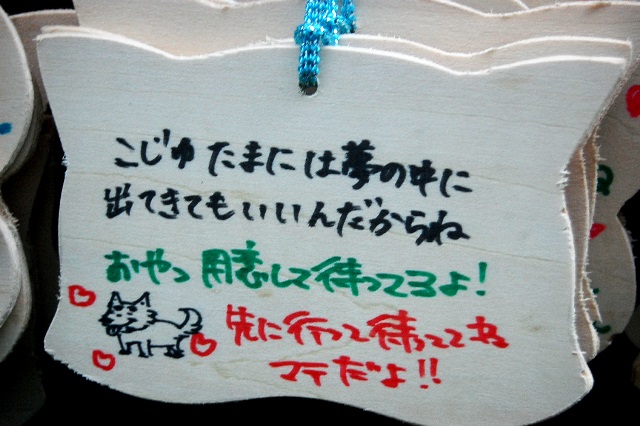 こじゅ たまには夢の中に
出てきてもいいんだからね
おやつ 用意して待ってるよ!
先に行って待っててね
マテだよ!!